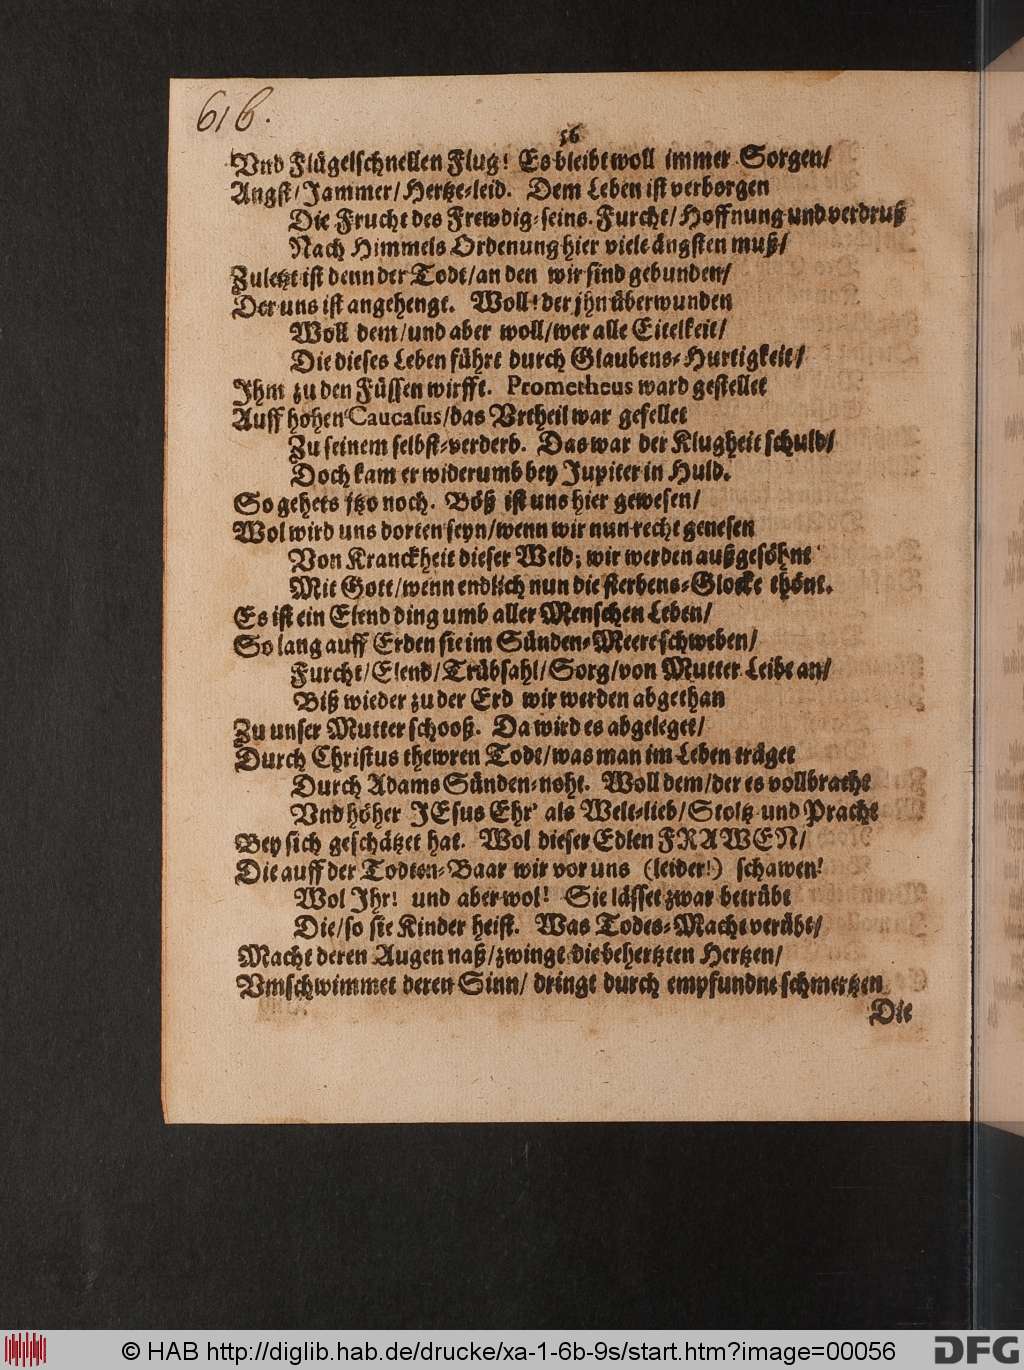 61b.
56
Vnd Flügelschnellen Flug! Es bleibt woll immer Sorgen/
Angst/Jammer/Hertze-leid. Dem Leben ist verborgen
Die Frucht des Frewdig-seins. Furcht/Hoffnung und verdruß
Nach Himmels Ordenung hier viele ängsten muß/
Zuletzt ist denn der Todt/an den wir sind gebunden/
Der uns ist angehengt. Woll! der jhn überwunden
Woll dem/und aber woll/wer alle Eitelkeit/
Die dieses Leben führt durch Glaubens-Hurtigkeit/
Ihm zu den Füssen wirfft. Prometheus ward gestellet
Auff hohen Caucasus/das Vrtheil war gefellet
Zu seinem selbst-verderb. Das war der Klugheit schuld/
Doch kam er widerumb bey Jupiter in Huld.
So gehets jtzo noch. Böß ist uns hier gewesen/
Wol wird uns dorten seyn/wenn wir nun recht genesen
Von Kranckheit dieser Weld; wir werden außgesöhnt
Mit Gott/wenn endlich nun die sterbens-Glocke thönt.
Es ist ein Elend ding umb aller Menschen Leben/
So lang auff Erden sie im Sünden-Meere schweben/
Furcht/Elend/Trübsahl/Sorg/von Mutter Leibe an/
Biß wieder zu der Erd wir werden abgethan
Zu unser Mutter schooß. Da wird es abgeleget/
Durch Christus thewren Todt/was man im Leben träget
Durch Adams Sünden-noht. Woll dem/der es vollbracht
Vnd höher JEsus Ehr' als Welt-lieb/Stoltz und Pracht
Bey sich geschätzet hat. Wol dieser Edlen FRAWEN/
Die auff der Todten-Baar wir vor uns (leider!) schawen!
Wol Ihr! und aber wol! Sie lässet zwar betrübt
Die/so sie Kinder heist. Was Todes-Macht verübt/
Macht deren Augen naß/zwingt die behertzten Hertzen/
Vmschwimmet deren Sinn/ dringt durch empfundne schmertzen
Die
© HAB http://diglib.hab.de/drucke/xa-1-6b-9s/start.htm?image=00056
DFG